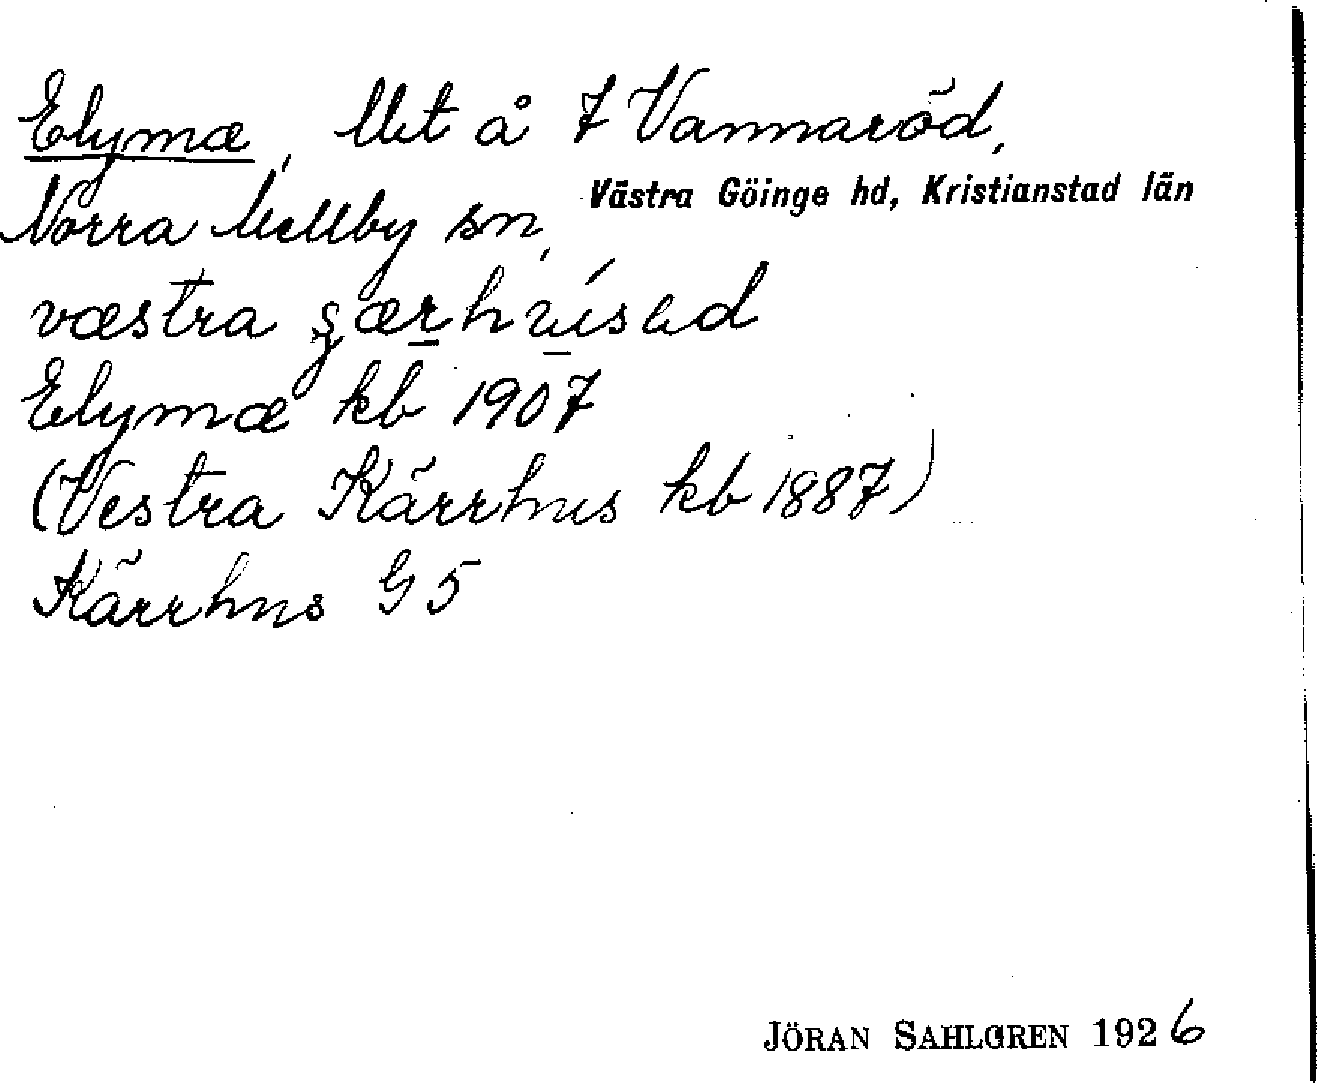 Elymæ, Mt å 7 Vannaröd,
Norra Mellby sn, Västra Göinge hd, Kristianstad län
væstra
Elymæ kb 1907
(Vestra Kärrhus kb 1887)
Kärrhus G 5
JÖRAN SAHLGREN 1926